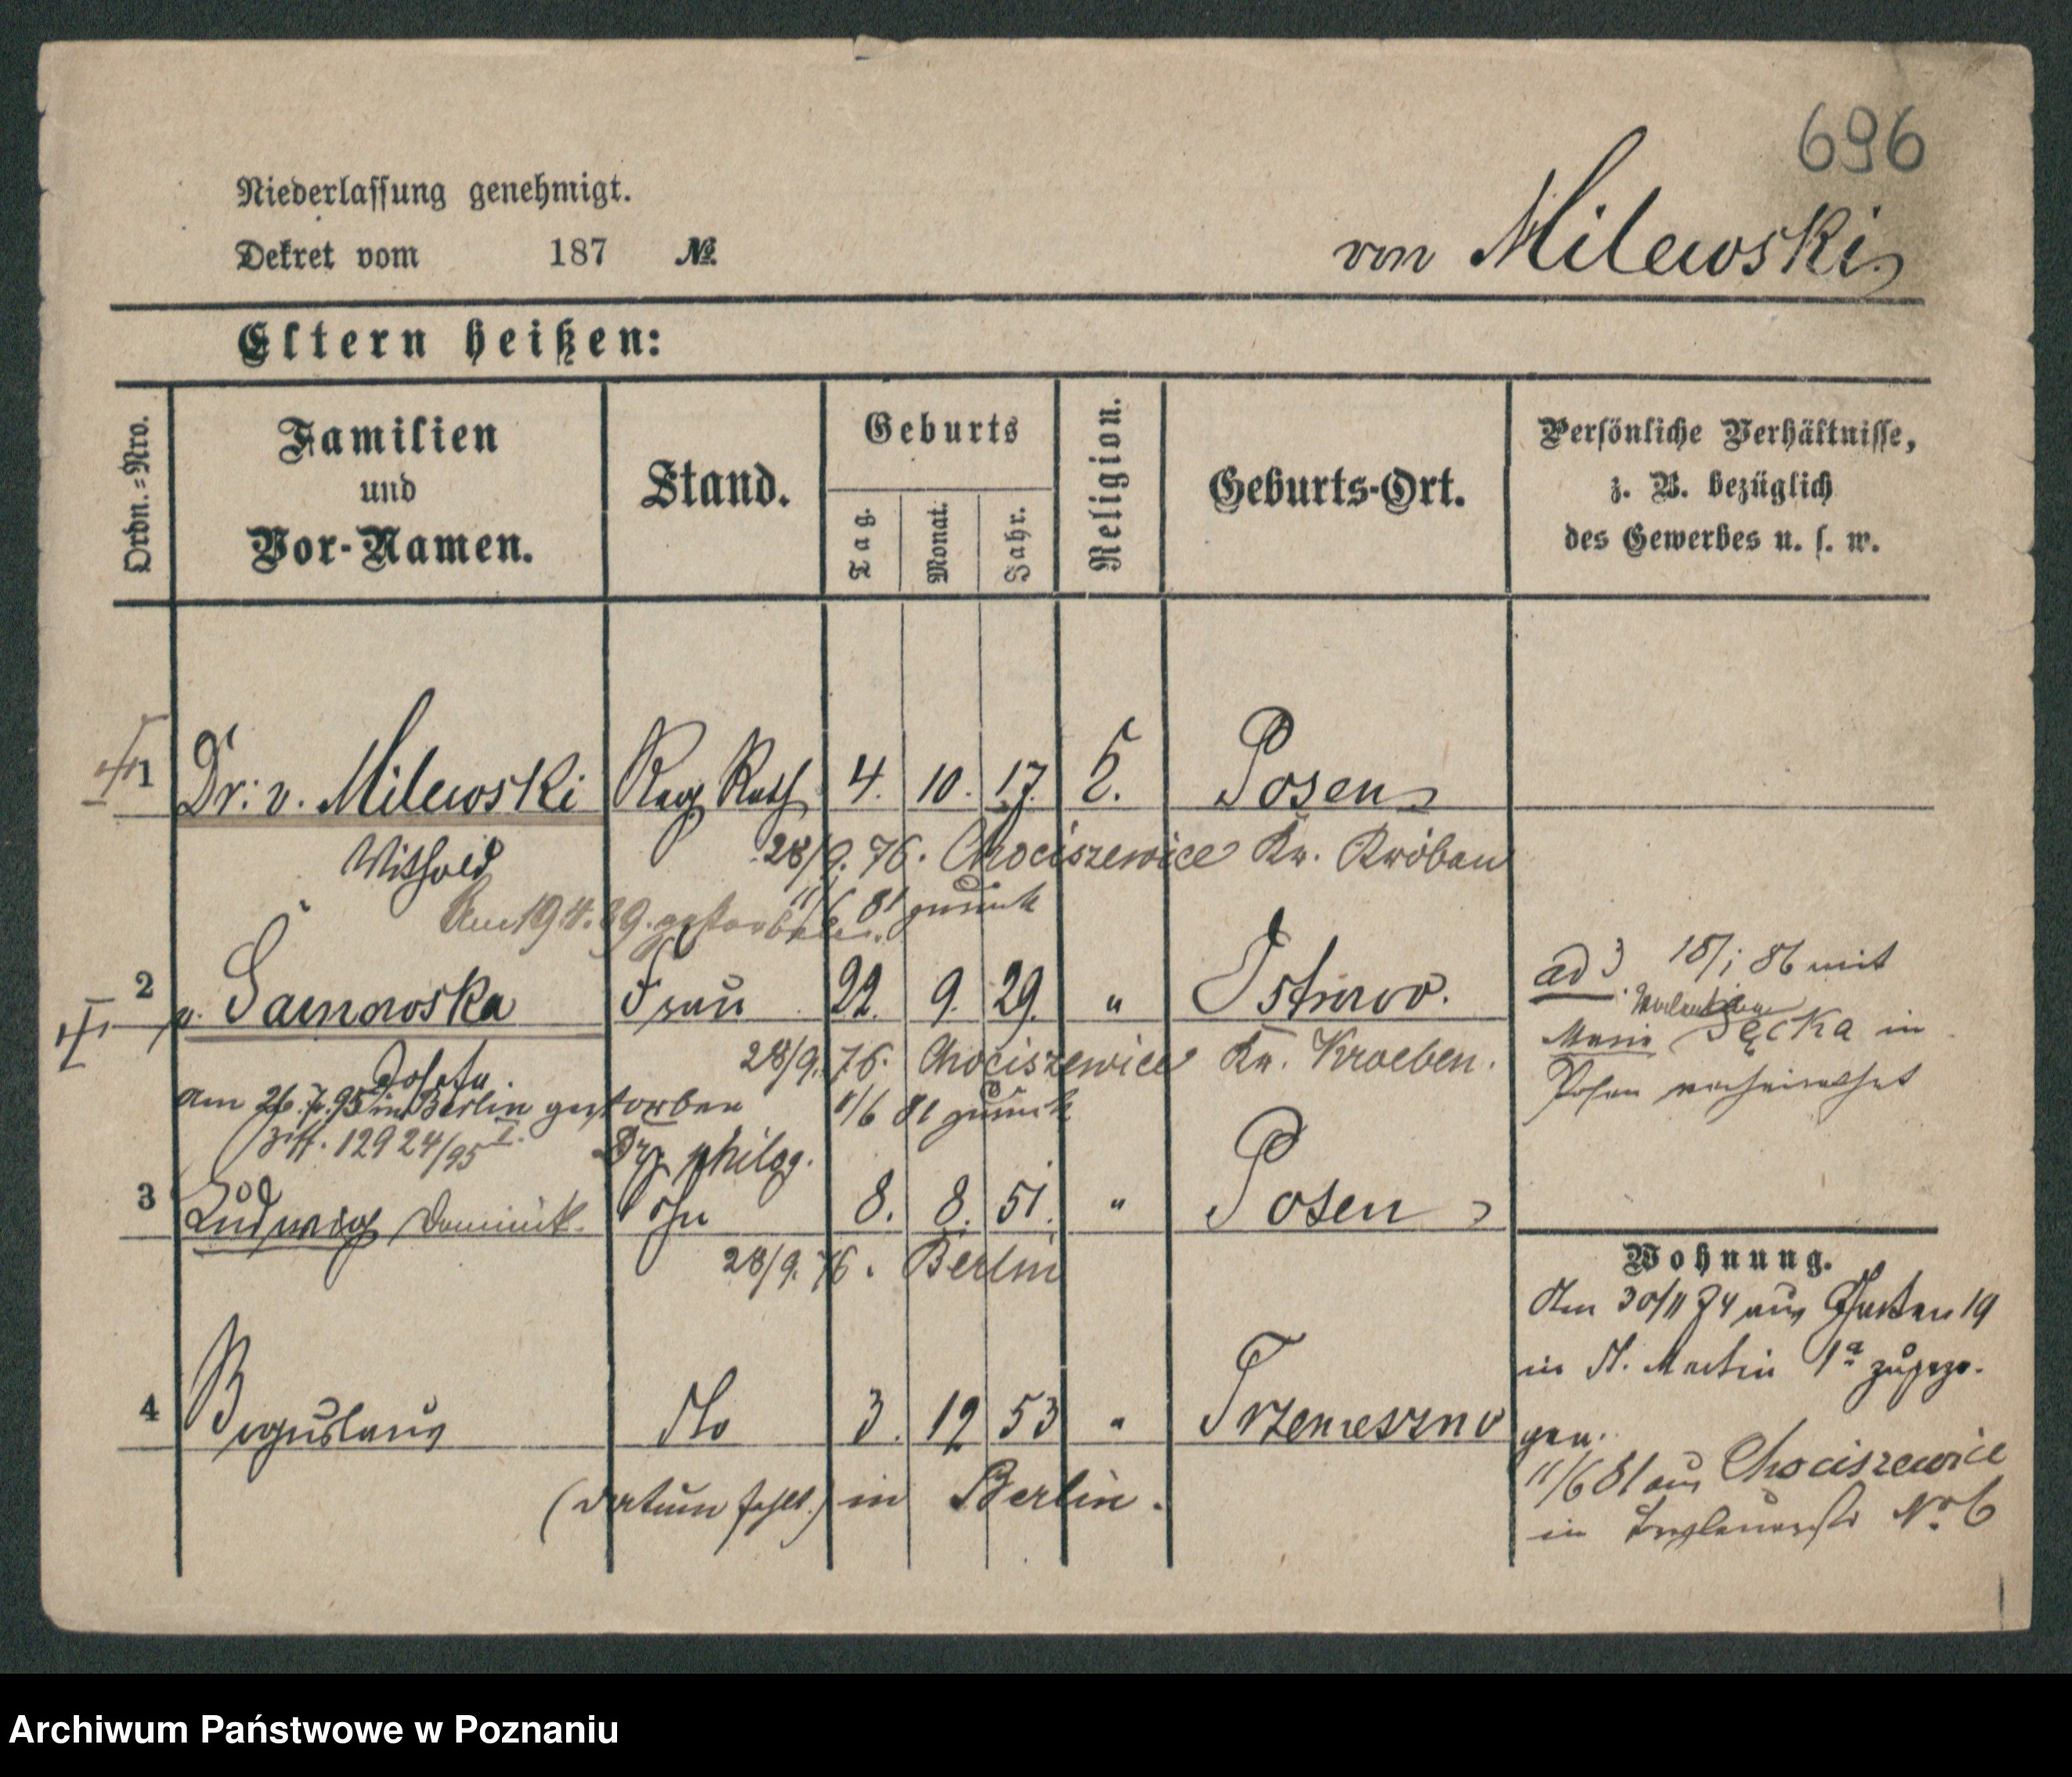 696
Niederlassung genehmigt.
von Milewski
Dekret vom 187 No.
Eltern heißen:
Ordn.=Nro.
Familien
und
Vor-Namen.
Stand.
Geburts
Tag.
Monat.
Jahr.
Religion.
Geburts-Ort.
Persönliche Verhältnisse,
z. B. bezüglich
des Gewerbes u. s. w.
1 Dr: v. Milewski Reg Rath 4. 10. 17. Posen
Withold 28/9. 76. Chociszewice Kr. Kröben
Am 19.4.89. gestorben. 11/6 81 zurück
2 v. Frau 22. 9. 29. " Ostrowo.
28/9. 76. Chociszewice Kr. Kroeben.
Josefa.
am 26.7.95 in Berlin gestorben 11/6 81 zurück
12924/95 I.
Dr. philos.
3 Ludwig Dominik. Sohn 8. 8. 51. " Posen
28/9. 76. Berlin
4 Boguslaus dto 3. 12 53 " Trzemeszno
(Datum fehlt.) in Berlin.
ad 3 18/1 86 mit
Marie in
Posen verheirathet
Wohnung.
Am 30/11 74 aus 19
in St. Martin 1a zugezo-
gen.
11/6 81 aus Chociszewice
in No. 6
Archiwum Państwowe w Poznaniu